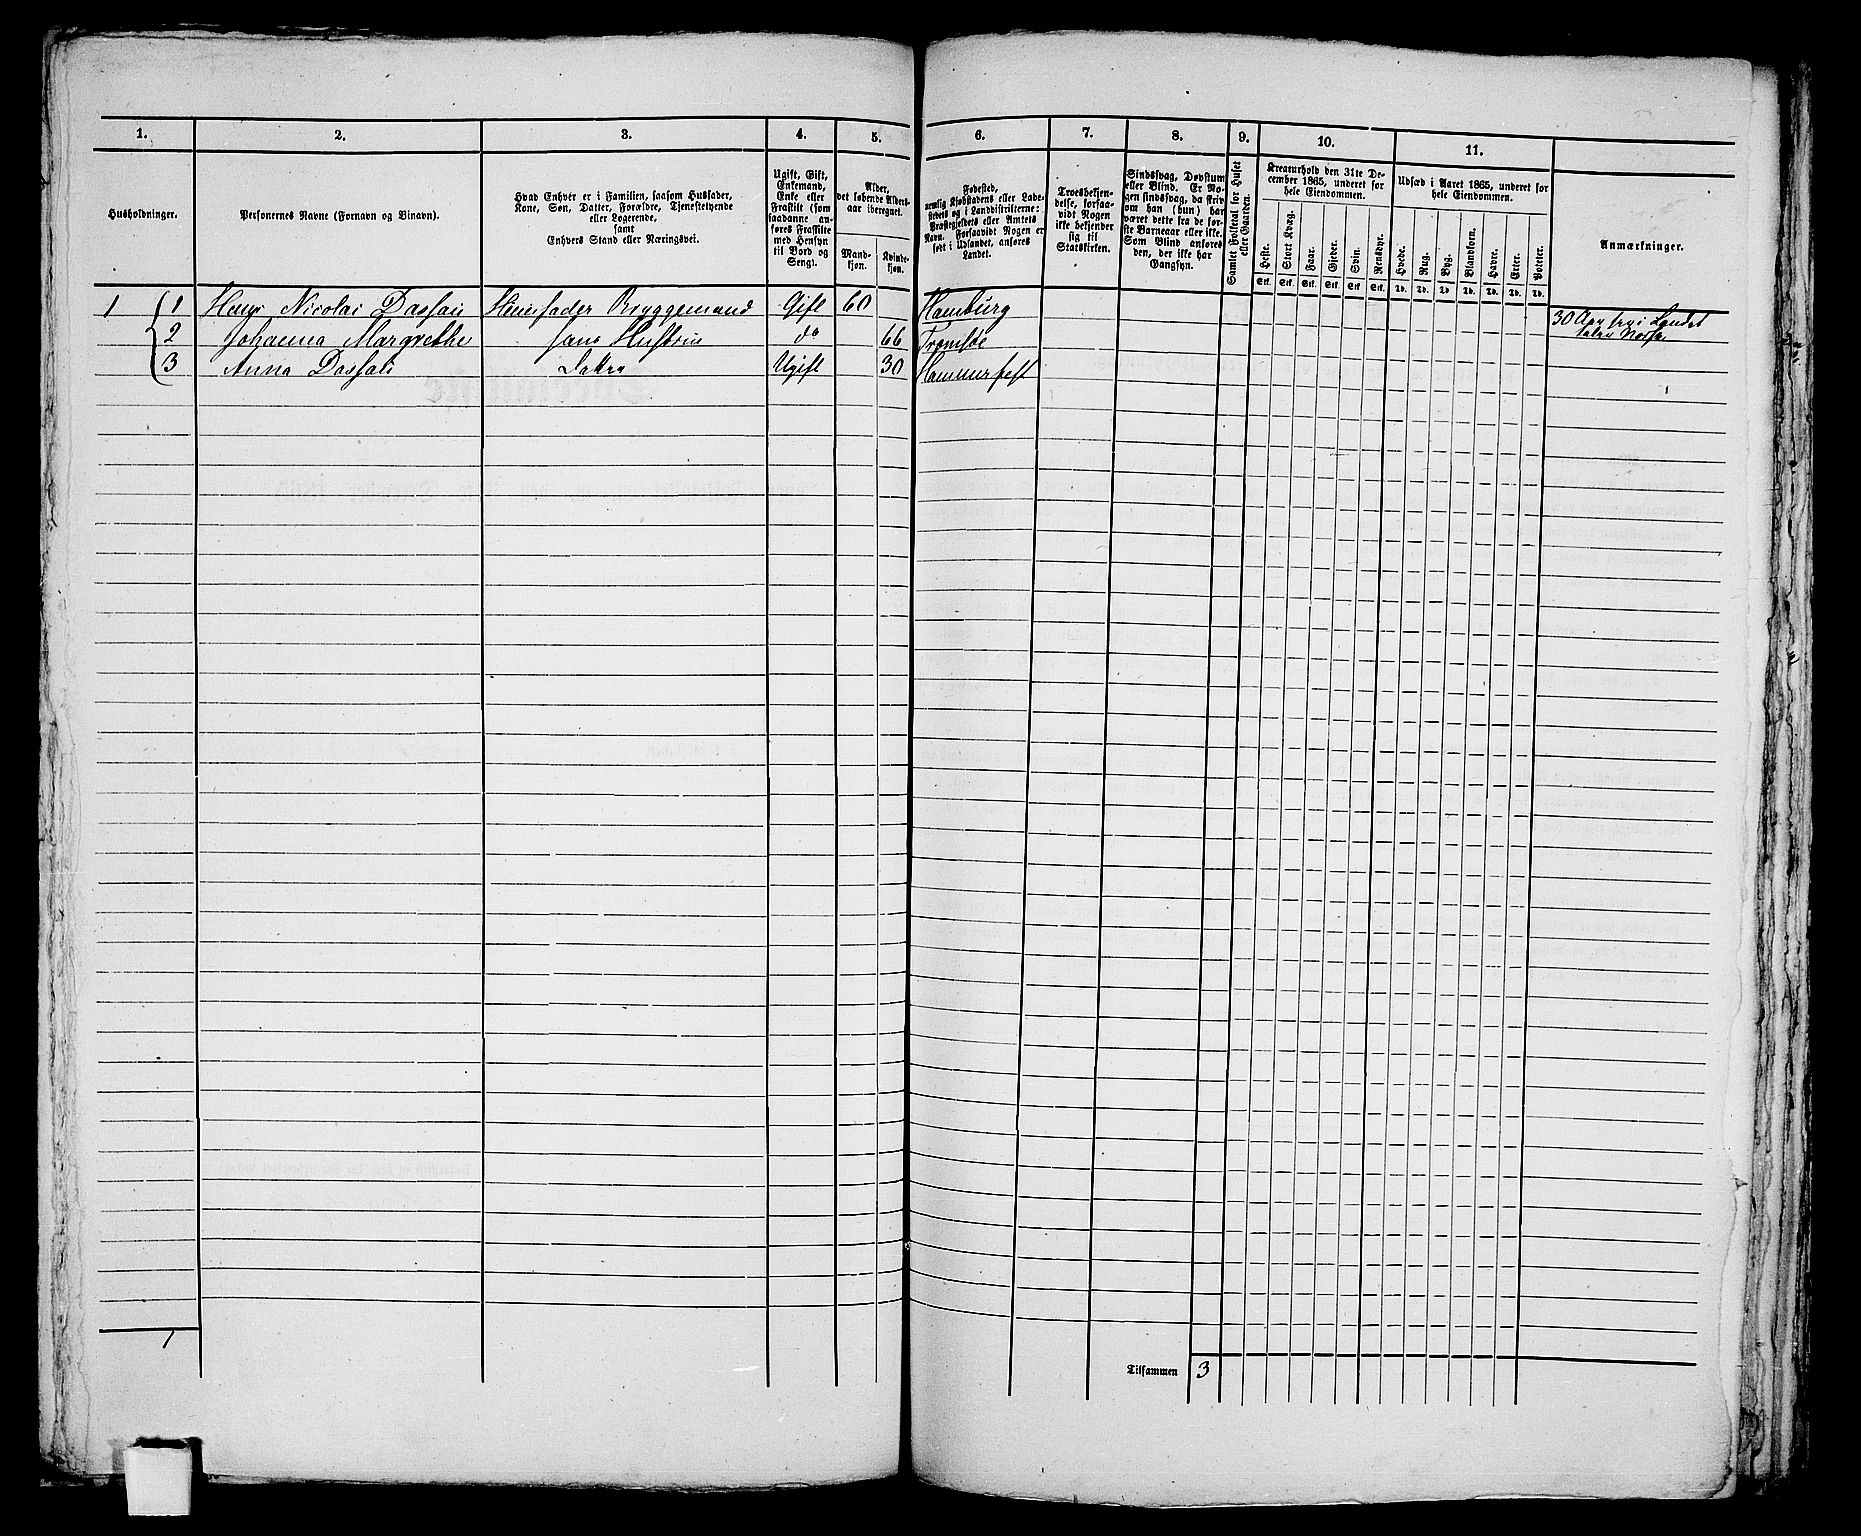 1. 2. 3. 4. 5. 6. 7. 8. 9. 10. 11.
Husholdninger.
Personernes Navne (Fornavn og Binavn).
Hvad Enhver er i Familien, saasom Husfader,
Kone, Søn, Datter, Forældre, Tjenestetyende
eller Logerende,
samt
Enhvers Stand eller Næringsvei.
Ugift, Gift,
Enkemand,
Enke eller
Fraskilt (som
saadanne an-
føres Fraskilte
med Hensyn
til Bord og
Seng).
Alder,
det løbende Alders-
aar iberegnet.
Mand-
kjøn.
Kvinde-
kjøn.
Fødested,
nemlig Kjøbstadens eller Lade-
stedets og i Landdistrikterne:
Præstegjeldets eller Amtets
Navn. Forsaavidt Nogen er
født i Udlandet, anføres
Landet.
Troesbekjen-
delse, forsaa-
vidt Nogen
ikke bekjender
sig til
Statskirken.
Sindssvag, Døvstum
eller Blind. Er No-
gen sindssvag, da skriv
om han (hun) har
været dette fra de før-
ste Barneaar eller ikke.
Som Blind anføres
den, der ikke har
Gangsyn.
Samlet Folketal for Huset
eller Gaarden.
Kreaturhold den 31te De-
cember 1865, underet for
hele Eiendommen.
Heste. Stort Kvæg. Faar. Gjeder. Svin. Rensdyr.
Stk. Stk. Stk. Stk. Stk. Stk.
Udsæd i Aaret 1865, underet for
hele Eiendommen.
Hvede. Rug. Byg. Blandkorn. Havre. Erter. Poteter.
Td. Td. Td. Td. Td. Td. Td.
Anmærkninger.
1 1 Nicolai Dassau Huusfader Bryggemand Gift 60 Hamburg 30 Landet
2 Johanna Margrethe Hans Hustrue do 66 Tromsøe
3 Anna Dassau Datter Ugift 30 Hammerfest
1
Tilsammen 3